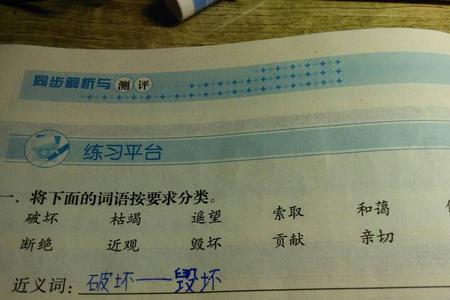 同步解析与测评
练习平台
一、将下面的词语按要求分类。
破坏 枯竭 遥望 索取 和蔼
断绝 近观 毁坏 贡献 亲切
近义词：破坏——毁坏